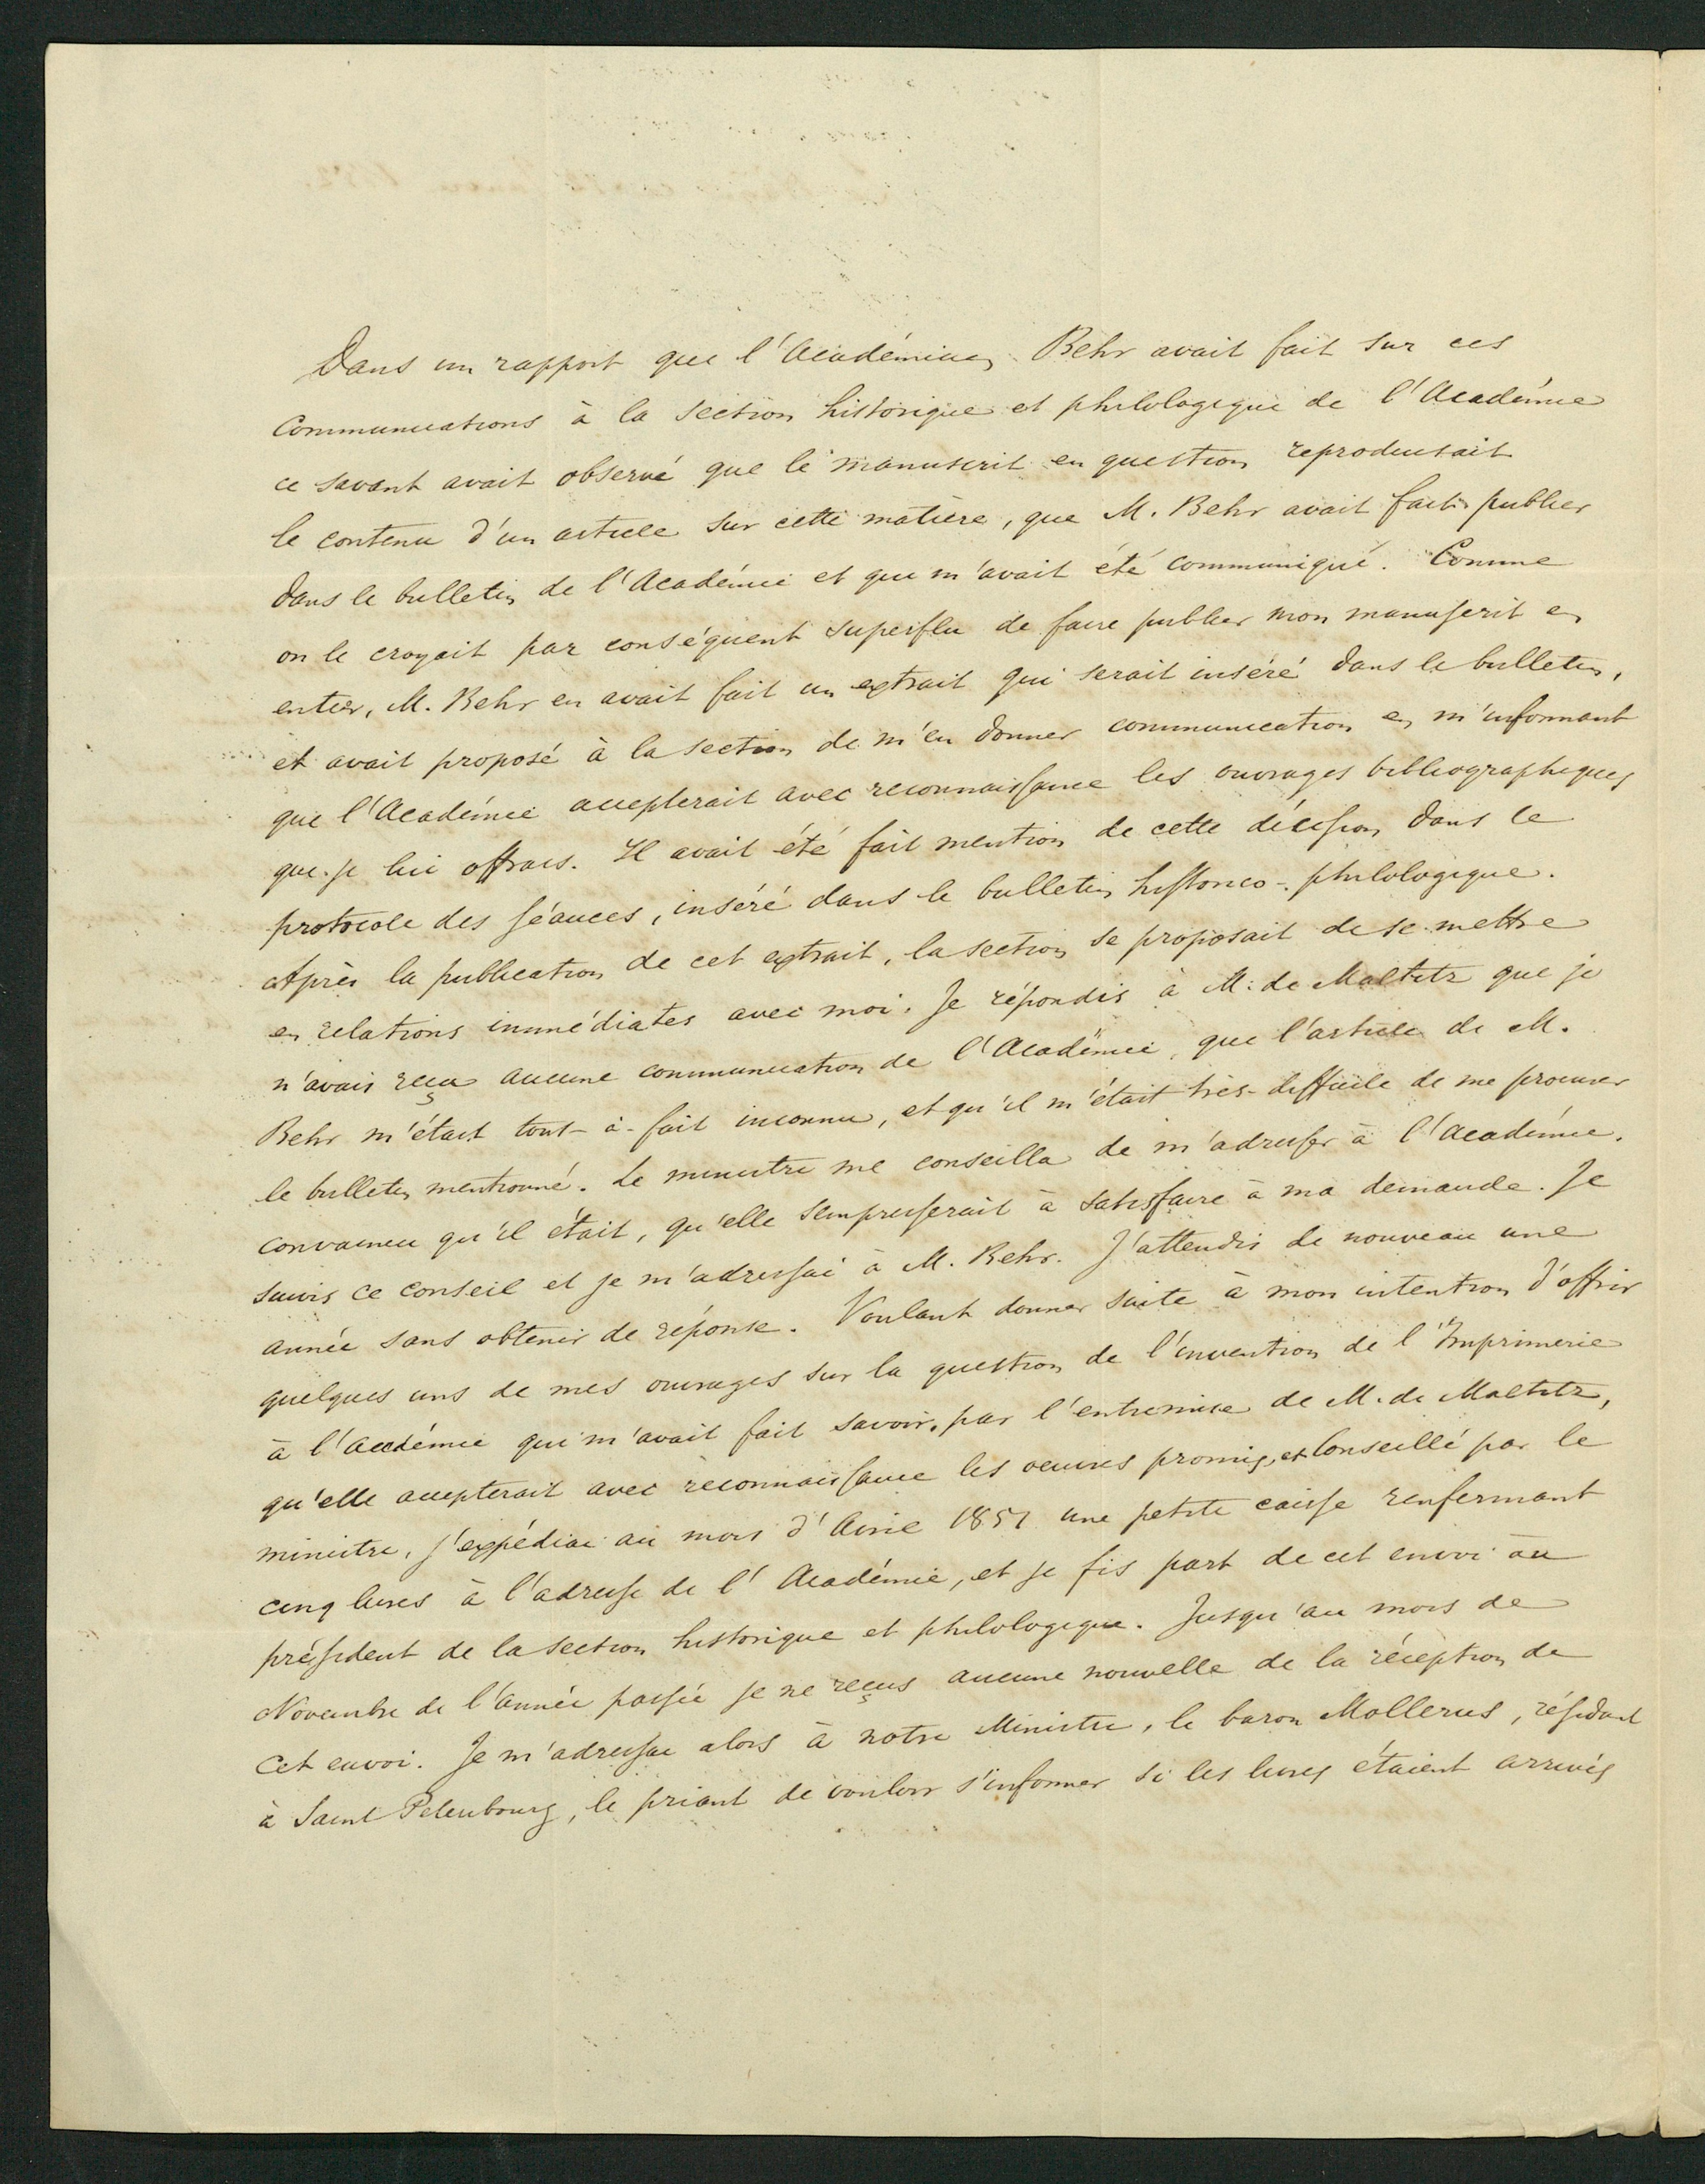 Dans un rapport que l'Académicien Behr avait fait sur ces
Communications à la section historique et philologique de l'Académie
ce savant avait observé que le manuscrit en question reproduisait
le contenu d'un article sur cette matière, que M. Behr avait fait publier
dans le bulletin de l'Académie et que m'avait été communiqué. Comme
on le croyait par conséquent superflu de faire publier mon manuscrit en
entier, M. Behr en avait fait un extrait qui serait inséré dans le bulletin,
et avait proposé à la section de m'en donner communication en m'informant
que l'Académie accepterait avec reconnaissance les ouvrages bibliographiques
que je lui offrais. Il avait été fait mention de cette décision dans le
protocole des séances, inséré dans le bulletin historico-philologique.
Après la publication de cet extrait, la section se proposait de se mettre
en relations immédiates avec moi. Je répondis à M. de Maltitz que je
n'avais reçu aucune communication de l'Académie, que l'article de M.
Behr m'était tout-à-fait inconnu, et qu'il m'était très-difficile de me procurer
le bulletin mentionné. Le ministre me conseilla de m'adresser à l'Académie,
convaincu qu'il était, qu'elle s'empresserait à satisfaire à ma demande. Je
suivis ce conseil et je m'adressai à M. Behr. J'attendis de nouveau une
année sans obtenir de réponse. Voulant donner suite à mon intention d'offrir
quelques uns de mes ouvrages sur la question de l'invention de l'Imprimerie
à l'Académie qui m'avait fait savoir, par l'entremise de M. de Maltitz,
qu'elle accepterait avec reconnaissance les oeuvres promis, et conseillé par le
ministre, j'expédiai au mois d'Avril 1851 une petite caisse renfermant
cinq livres à l'adresse de l'Académie, et je fis part de cet envoi au
président de la section historique et philologique. Jusqu'au mois de
Novembre de l'année passée je ne reçus aucune nouvelle de la réception de
cet envoi. Je m'adressai alors à notre Ministre, le baron Mollerus, résidant
à Saint Petersbourg, le priant de vouloir s'informer si les livres étaient arrivés